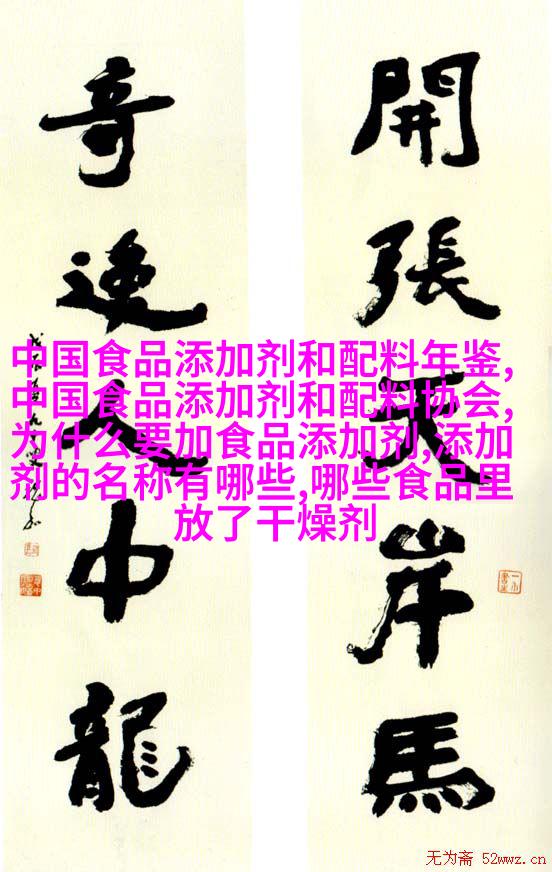 開張天岸馬
奇逸人中龍
中国食品添加剂和配料年鉴,
中国食品添加剂和配料协会,
为什么要加食品添加剂,添加
剂的名称有哪些,哪些食品里
放了干燥剂
无为斋 52wwz.cn